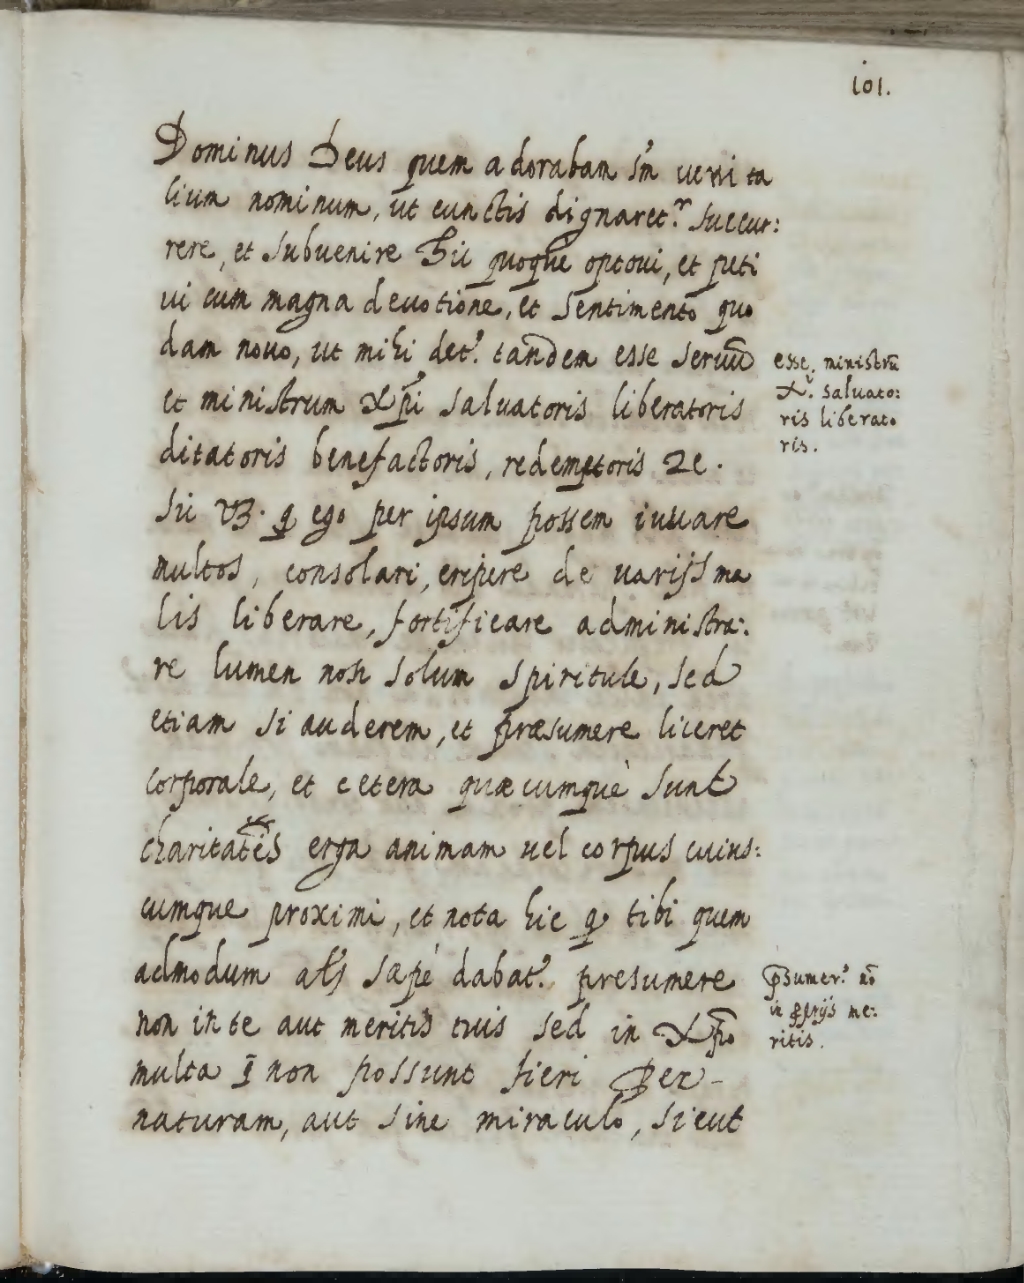 101.
Dominus Deus quem adorabam sm̃ ueri ta
lium nominum, ut cunctis dignaret.ʳ succur:
rere, et subuenire hic quoque optoui, et peti
ui cum magna deuotione, et sentimento quo
dam nouo, ut mihi det.ʳ tandem esse seruũ
et ministrum Xp̃i saluatoris liberatoris
ditatoris benefactoris, redemptoris 2c.
esse ministrũ
Xⁱ. saluato:
ris liberato
ris.
Sic VZ. q̨ ego per ipsum possem iuuare
multos, consolari, eripere de uarijs ma
lis liberare, fortificare administra:.
re lumen non solum spiritule, sed
etiam si auderem, et præsumere liceret
corporale, et cetera quæcumquè sunt
charitatẽs erga animam uel corpus cuius:
cumque proximi, et nota hic q̨ tibi quem
admodum als̃ sæpè dabat.ʳ presumere
non in te aut meritis tuis sed in Xp̃o
multa q̃ non possunt fieri per
naturam, aut sine miraculo, sicut
p̃sumer.ᵉ nõ
in ꝓprijs me:
ritis.